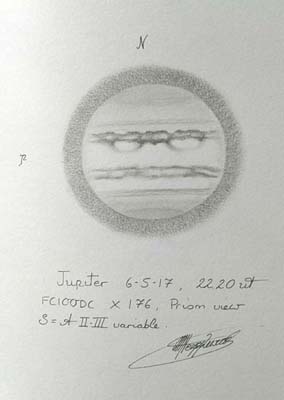 N
P
Jupiter 6-5-17, 2220 ut
FC100DC x 176, Prism view
S = A II-III variable.